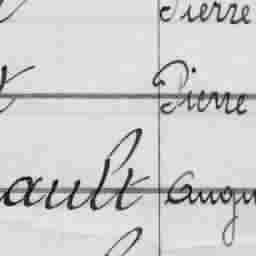 Pierre
Pierre
ault Augu